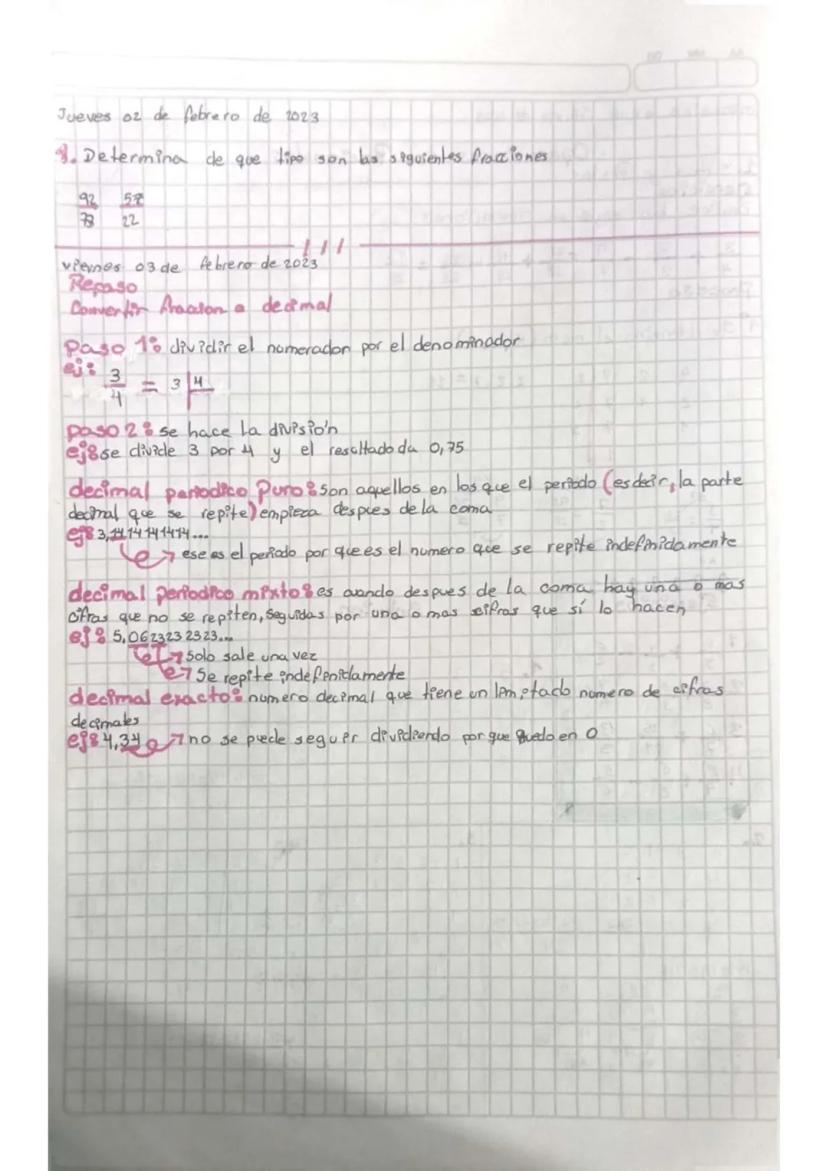 Jueves 02 de febrero de 2023
1. Determina de que tipo son las siguientes fracciones
92 57
78 22
viernes 03 de febrero de 2023
Repaso
Convertir fraccion a decimal
Paso 1: dividir el numerador por el denominador
ej: 3/4 = 3 4
paso 2: se hace la división
ej: se divide 3 por 4 y el resultado da 0,75
decimal periodico Puro: Son aquellos en los que el periodo (es decir, la parte
decimal que se repite) empieza despues de la coma
ej: 3,1414141414...
ese es el periodo por que es el numero que se repite indefinidamente
decimal periodico mixto: es cuando despues de la coma hay una o mas
cifras que no se repiten, seguidas por una o mas cifras que sí lo hacen
ej: 5,0623232323...
Solo sale una vez
Se repite indefinidamente
decimal exacto: numero decimal que tiene un limitado numero de cifras
decimales
ej: 4,34 no se puede seguir dividiendo por que quedo en 0